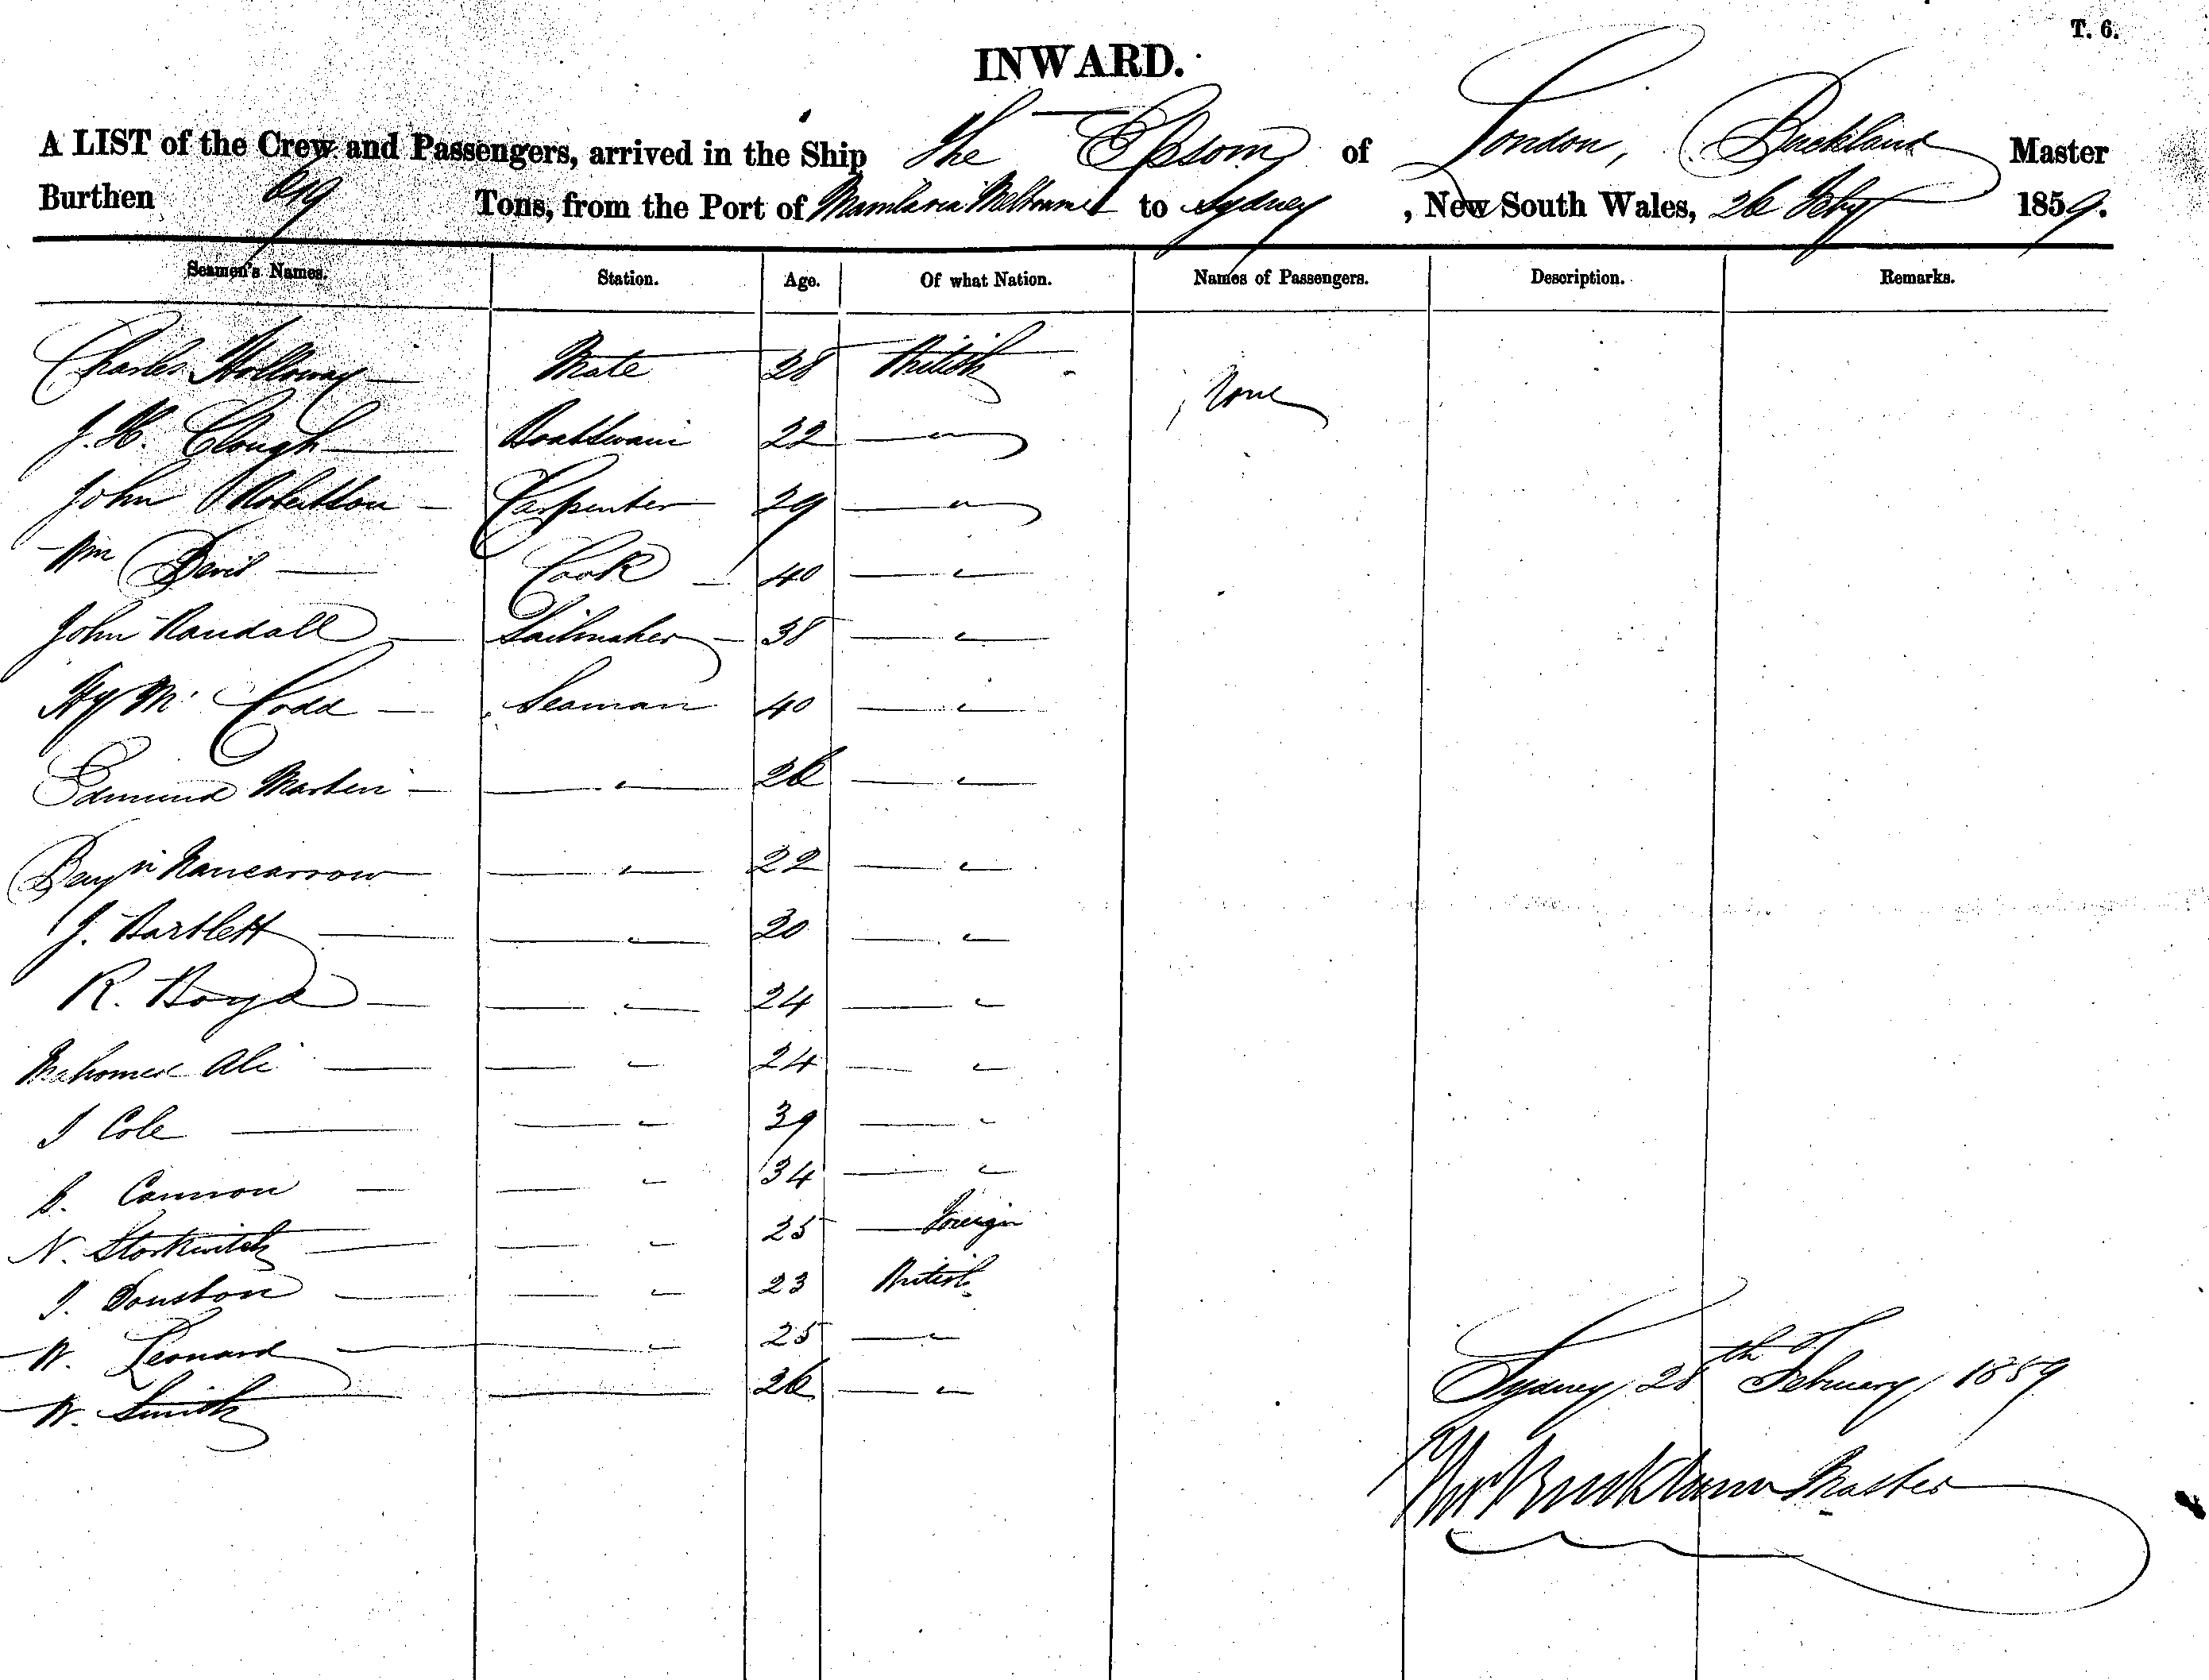 T. 6.
INWARD.
A LIST of the Crew and Passengers, arrived in the Ship The Epsom of London, Buckland Master
Burthen 619 Tons, from the Port of Melbourne to Sydney, New South Wales, 26 Feby 1859.
Seamen's Names. Station. Age. Of what Nation. Names of Passengers. Description. Remarks.
Charles Holloway Mate 28 British None
J. H. Clough Boatswain 22 "
John Robertson Carpenter 29 "
Wm David Cook 40 "
John Randall Sailmaker 38 "
Hy Mc Codd Seaman 40 "
Edmund Martin " 26 "
Benjn Nancarrow " 22 "
J. Bartlett " 20 "
R. Boyd " 24 "
Mahomed Ali " 24 "
J Cole " 39 "
B. Cannon " 34 "
N. Storkwitch " 25 Foreign
J. Donston " 23 British
W. Leonard " 25 "
W. Smith " 26 "
Sydney 28th February 1859
Buckland Master